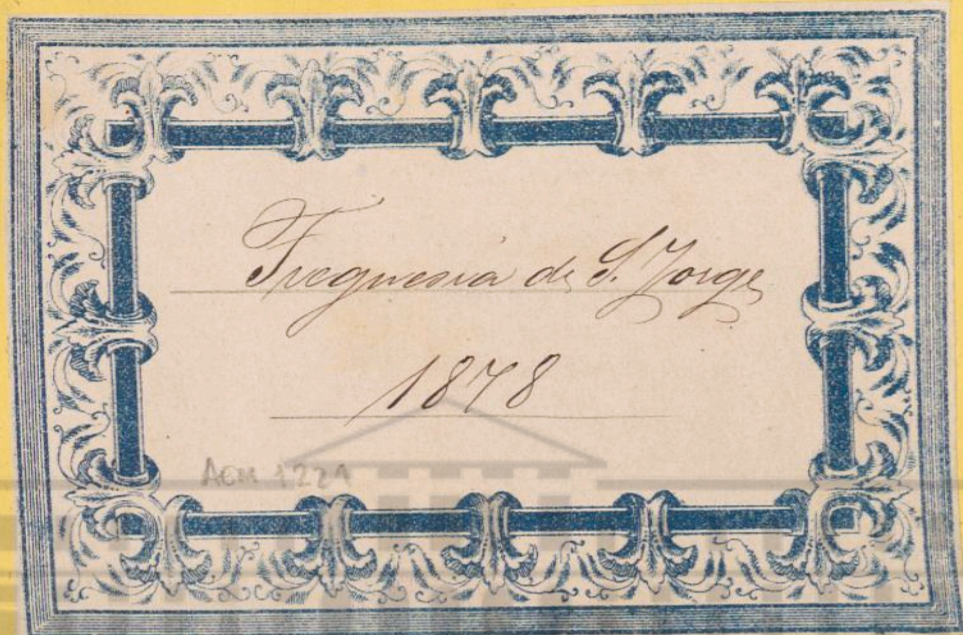 Freguesia de S. Jorge
1878
ACM 1221